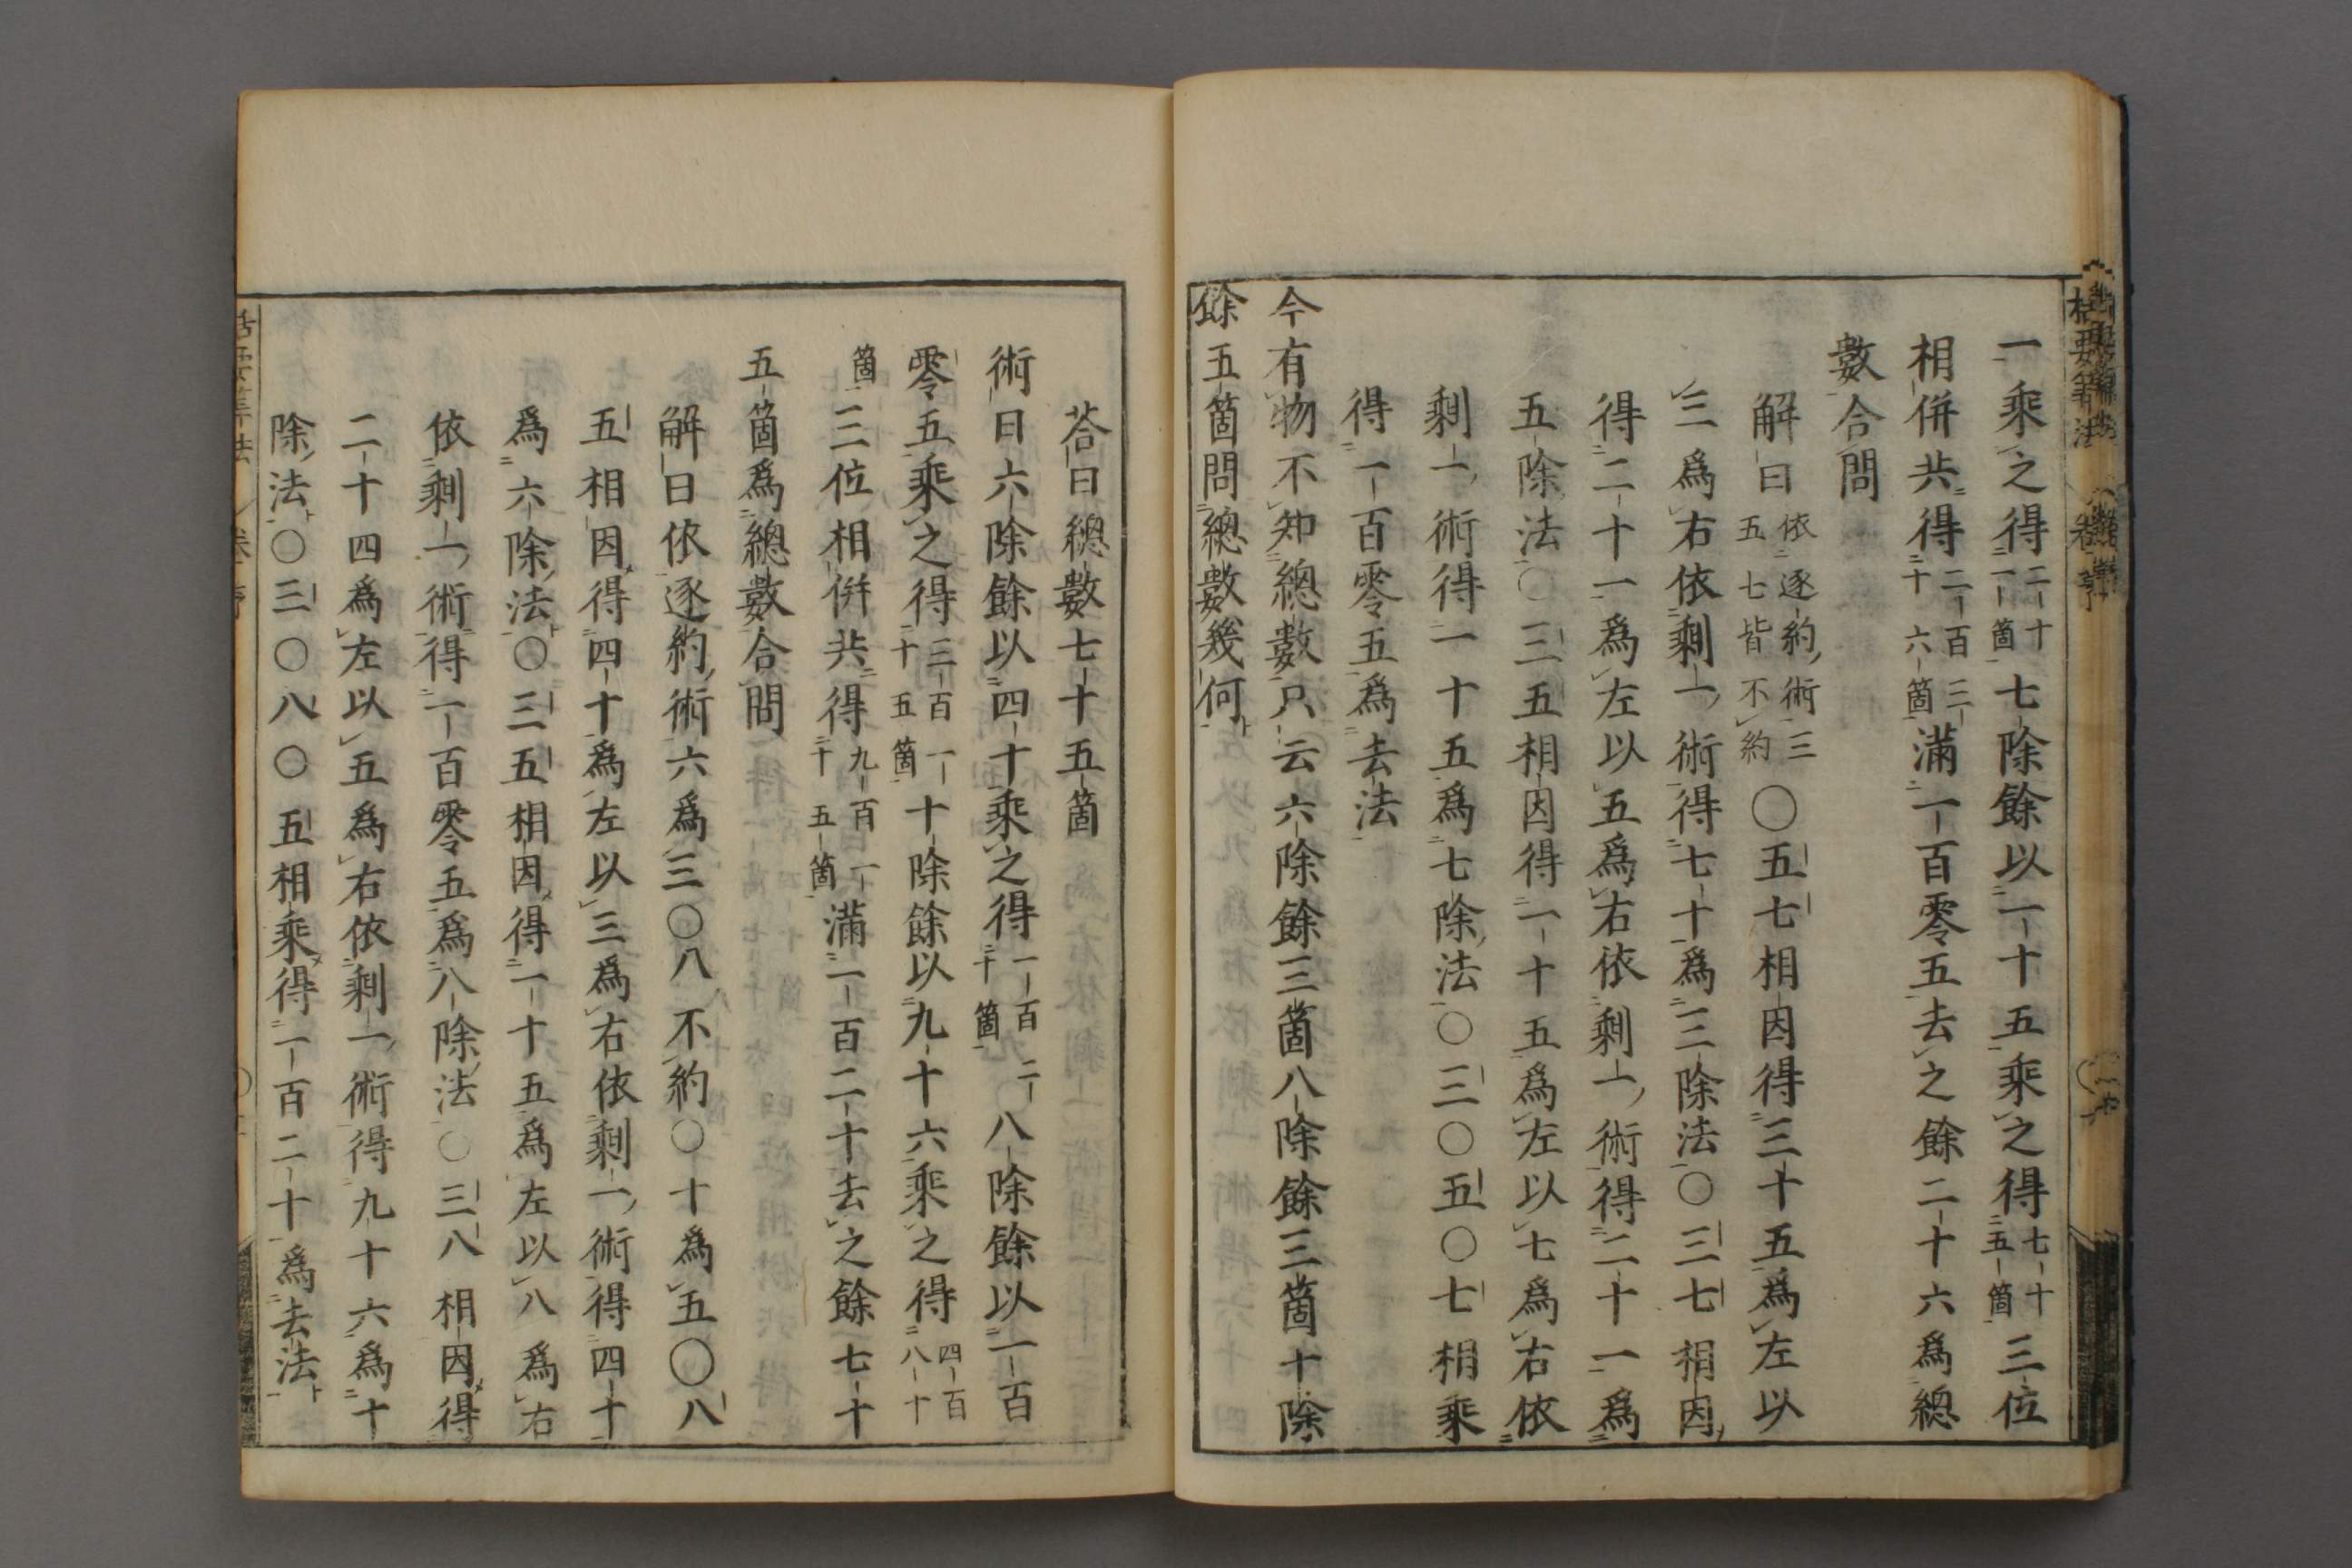 一乘之得二十一箇七除餘以一十五乘之得七十五箇三位
相併共得二百三十六箇滿一百零五去之餘二十六爲總
數合問
解曰依逐約術三五七皆不約〇五七相因得三十五爲左以
三爲右依剩一術得七十爲三除法〇三七相因
得二十一爲左以五爲右依剩一術得二十一爲
五除法〇三五相因得一十五爲左以七爲右依
剩一術得一十五爲七除法〇三〇五〇七相乘
得一百零五爲去法
今有物不知總數只云六除餘三箇八除餘三箇十除
餘五箇問總數幾何
荅曰總數七十五箇
術曰六除餘以四十乘之得一百二十箇八除餘以一百
零五乘之得三百一十五箇十除餘以九十六乘之得四百八十
箇三位相併共得九百一十五箇滿一百二十去之餘七十
五箇爲總數合問
解曰依逐約術六爲三〇八不約〇十爲五〇八
五相因得四十爲左以三爲右依剩一術得四十
爲六除法〇三五相因得一十五爲左以八爲右
依剩一術得一百零五爲八除法〇三八相因得
二十四爲左以五爲右依剩一術得九十六爲十
除法〇三〇八〇五相乘得一百二十爲去法